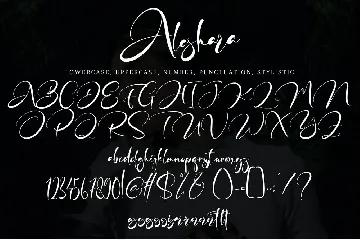 Alghara
LOWERCASE, UPPERCASE, NUMBER, PUNCTUATION, STYLISTIC
ABCDEFGHIJKLMN
OPQRSTUVWXYZ
abcdefghijklmnopqrstuvwxyz
1234567890!@#$%&